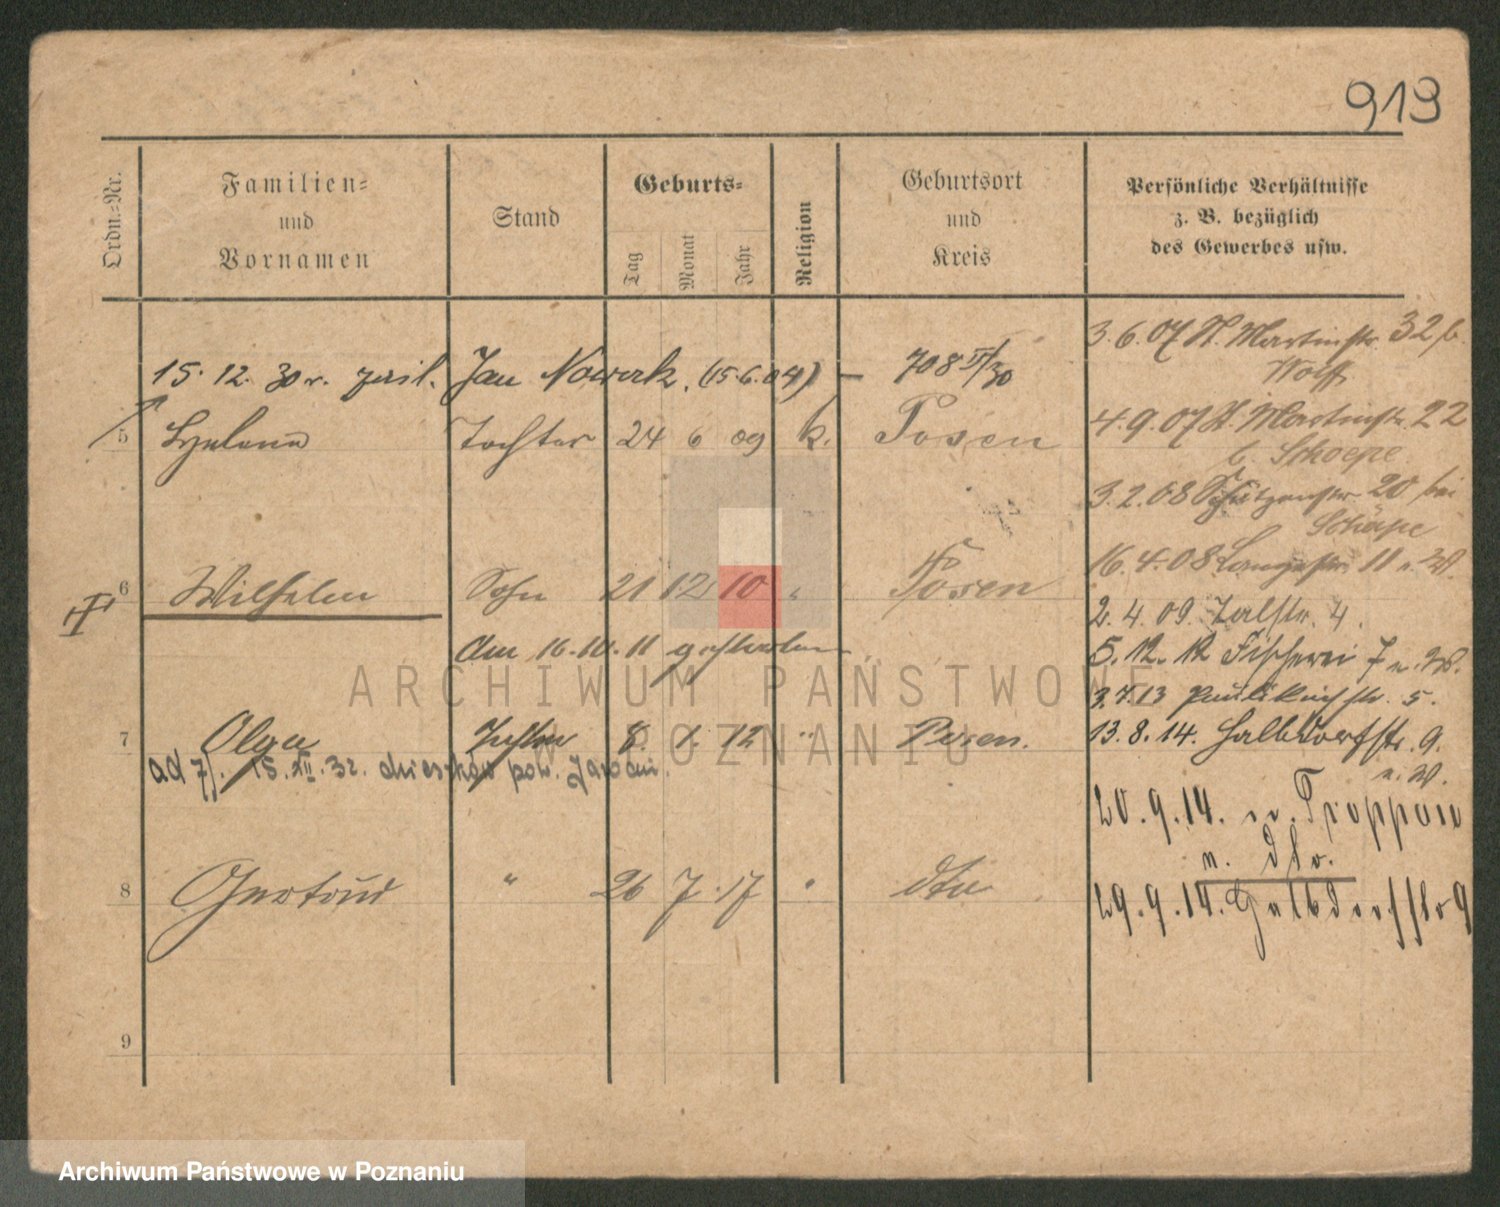 913
Ordn.-Nr.
Familien- und Vornamen
Stand
Geburts-
Tag
Monat
Jahr
Religion
Geburtsort und Kreis
Persönliche Verhältnisse
z. B. bezüglich
des Gewerbes usw.
15. 12. 30 r. Jan Nowak (15.6.04) – 708 II/30
5 Helene Tochter 24 6 09 k. Posen
6 Wilhelm Sohn 21 12 10 " Posen
am 16.10.11 gestorben
7 Olga Tochter 8. 1. 12 " Posen.
ad 7). 15.XII.32. pow. Jarocin.
8 Gertrud " 26 7. 17 " dto
9
3.6.07 St. Martinstr. 32 b.
Wolff
4.9.07 St. Martinstr. 22
b. Schoepe
3.2.08 Schützenstr. 20 bei
Schöpe
16.4.08 Langestr. 11 n. W.
2.4.09. Talstr. 4.
5.12.12 Fischerei 7 n. W.
3.7.13 Paulikirchstr. 5.
13.8.14. Halbdorfstr. 9.
n. W.
20.9.14. n. Troppau
29.9.14. Halbdorfstr 9
ARCHIWUM PAŃSTWOWE
W POZNANIU
Archiwum Państwowe w Poznaniu